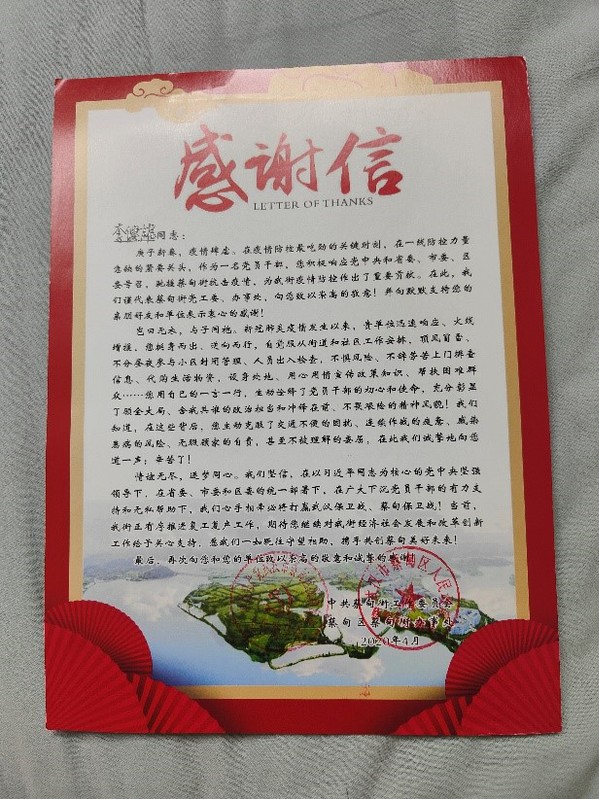 感谢信
LETTER OF THANKS
同志：
庚子新春，疫情肆虐。在疫情防控最吃劲的关键时刻，在一线防控力量
急缺的紧要关头，作为一名党员干部，您积极响应党中央和省委、市委、区
委号召，驰援蔡甸街抗击疫情，为我街疫情防控作出了重要贡献。在此，我
们谨代表蔡甸街党工委、办事处，向您致以崇高的敬意！并向默默支持您的
亲朋好友和单位表示衷心的感谢！
岂曰无衣，与子同袍。新冠肺炎疫情发生以来，贵单位迅速响应、火线
增援。您挺身而出、逆向而行，自觉服从街道和社区工作安排，顶风冒雪、
不分昼夜参与小区封闭管理、人员出入检查，不惧风险、不辞劳苦上门排查
信息、代购生活物资，设身处地、用心用情宣传政策知识、帮扶困难群
众……您用自己的一言一行，生动诠释了党员干部的初心和使命，充分彰显
了顾全大局、舍我其谁的政治担当和冲锋在前、不畏艰险的精神风貌！我们
知道，在这些背后，您主动克服了交通不便的困扰、连续作战的疲惫、感染
患病的风险、无暇顾家的自责，甚至不被理解的委屈，在此我们诚挚地向您
道一声：辛苦了！
情谊无尽，逐梦同心。我们坚信，在以习近平同志为核心的党中央坚强
领导下，在省委、市委和区委的统一部署下，在广大下沉党员干部的有力支
持和无私帮助下，我们心手相牵必将打赢武汉保卫战、蔡甸保卫战！当前，
我街正有序推进复工复产工作，期待您继续对我街经济社会发展和改革创新
工作给予关心支持，愿我们一如既往守望相助，携手共创蔡甸美好未来！
最后，再次向您和您的单位致以崇高的敬意和诚挚的感谢！
中共蔡甸街工作委员会
蔡甸区蔡甸街办事处
2020年4月